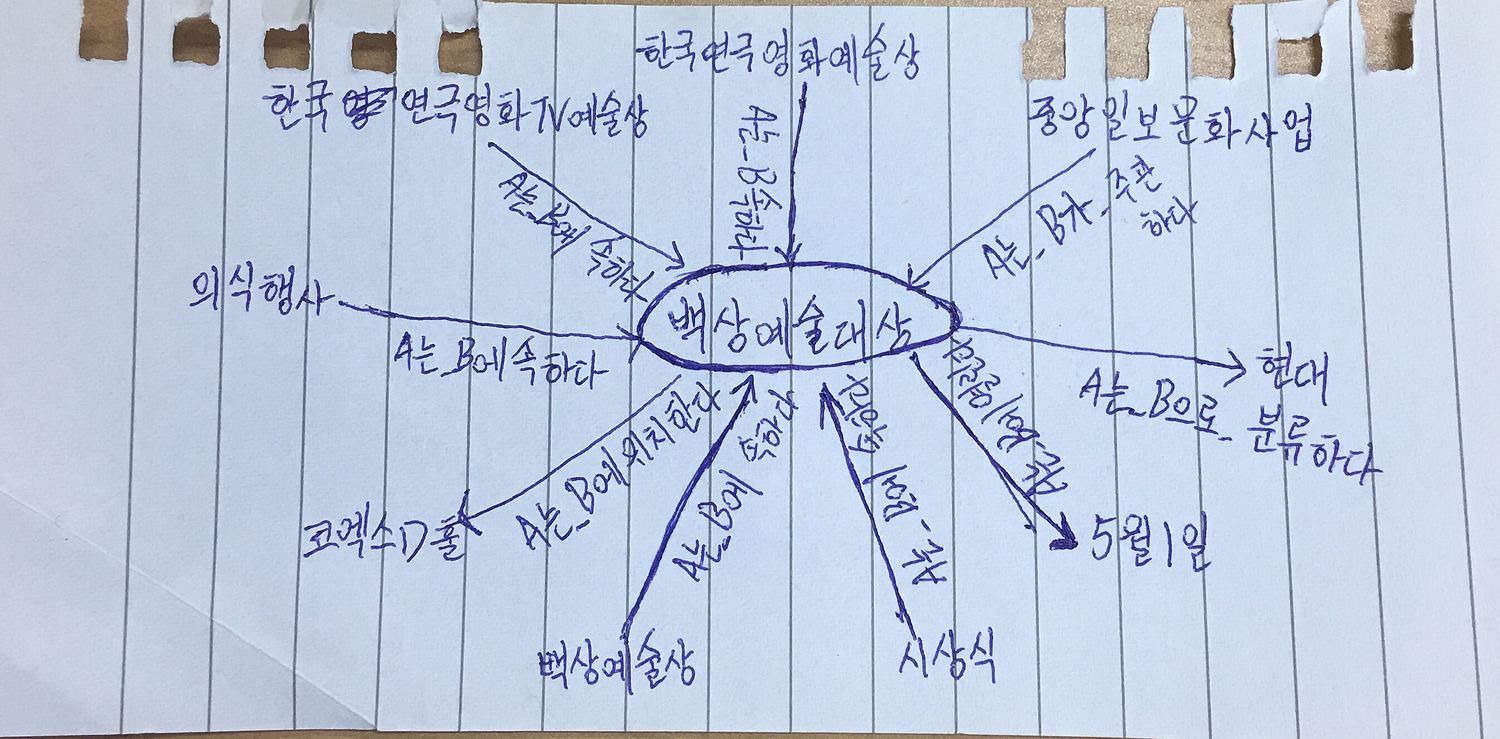 한국연극영화예술상
한국 연극영화TV예술상
중앙일보문화사업
A는_B에 속하다
A는_B속하다
A는_B가_주관
하다
의식행사
A는_B에속하다
백상예술대상
현대
A는_B으로_분류하다
A는_B에위치한다
A는_B에 속하다
A는_B에 속하다
A는_B에 열리다
코엑스D홀
5월1일
백상예술상
시상식